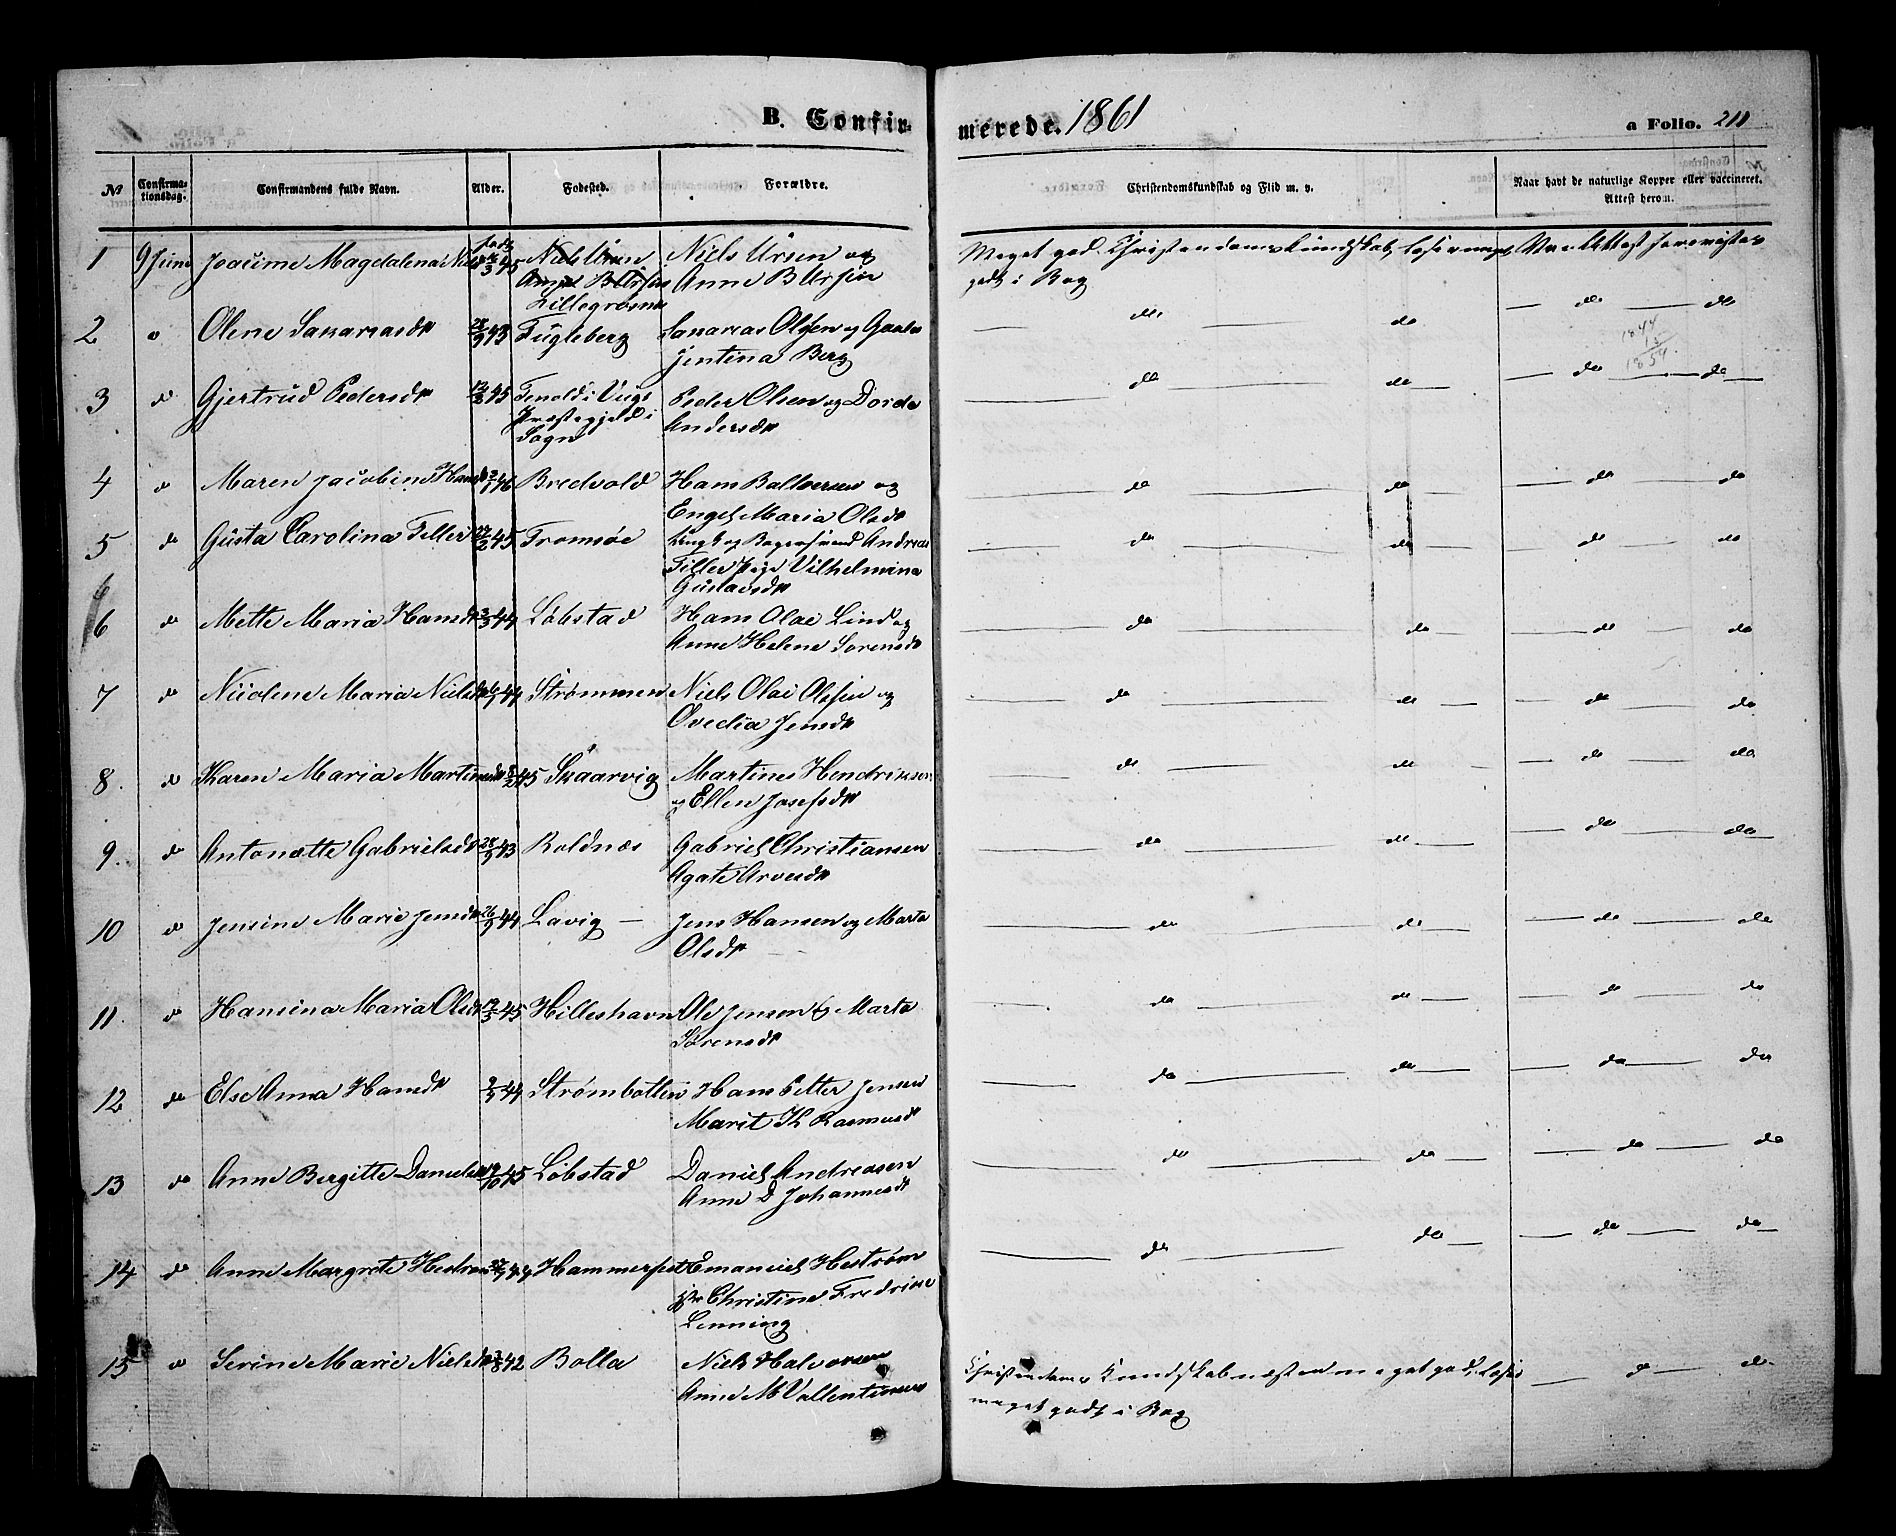 B. Confir-
merede. 1861
a Folio. 211
№ Confirma-tionsdag. Confirmandens fulde Navn. Alder. Fødested. Forældre. Christendomskundskab og Flid m. v. Naar havt de naturlige Kopper eller vaccineret. Attest herom.
1 9 Juni Joacime Magdalena født 3 45 Niels Ursen og
Anne B Ursin
Lillegrosnæs
Meget god Christendomskundskab, læser meget
godt i Bog
2 Olene Sakariasdt 28/9 43 Fugleberg Sakarias Olsen og
Jentina Berg
do do do do
1844
1854
3 do Gjertrud Pedersdt 12/2 45 Peder Olsen og Dorde
Præstegjeld i
Sogn
Andersdt
do do do do
4 do Maren Jacobine Hansdt 46 Bredvold Hans
Engel Maria Olsdt
do do do do
5 do Gusta Carolina Feller 27/2 45 Tromsøe Andreas
Feller Pige Vilhelmina
Gustavsdt
do do do do
6
6 do Mette Maria Hansdt 3/3 44 Løbstad Hans Olai Lind og
Anne Helene Sorensdt
do do do do
7 do Nicoline Maria Nielsdt 44 Strømmen Niels Olai Olsen og
Ovedia Jensdt
do do do do
8. do Karen Maria Martinusdt 45 Skaarvig Martines Hendriksen
og Ellen Josefsdt
do do do do
9. do Antonætte Gabrielsdt 28/9 43 Roldnæs Gabriel Christiansen
Agate Arvesdt
do do do do
10 do Jensine Marie Jensdt 26/9 44 Lavig — Jens Hansen og Marta
Olsdt —
do do do do
11. do Hansina Maria Olsdt 45 Hilleshavn Ole Jensen & Marta
Sørensdt
do do do do
12 do Else Anna Hansdt 44 Strømbotten Hans Petter Jensen
Marit K Rasmusdt
do do do do
13 do Anne Bergitte Danielsdt 45 Løbstad Daniel Andreasen
Anne D Johannesdt
do do do do
14 do Anne Margrete Hestrøm 44 Hammerfest Emanuel Hestrøm
Christine Fredrikke
Lenning
do do do do
15 Serine Marie Nielsdt 3/8 42 Bolla Niels Halvorsen
Anne M Vallentinsen
Christendoms Kundskab næsten meget god, læser
meget godt i Bog
do do